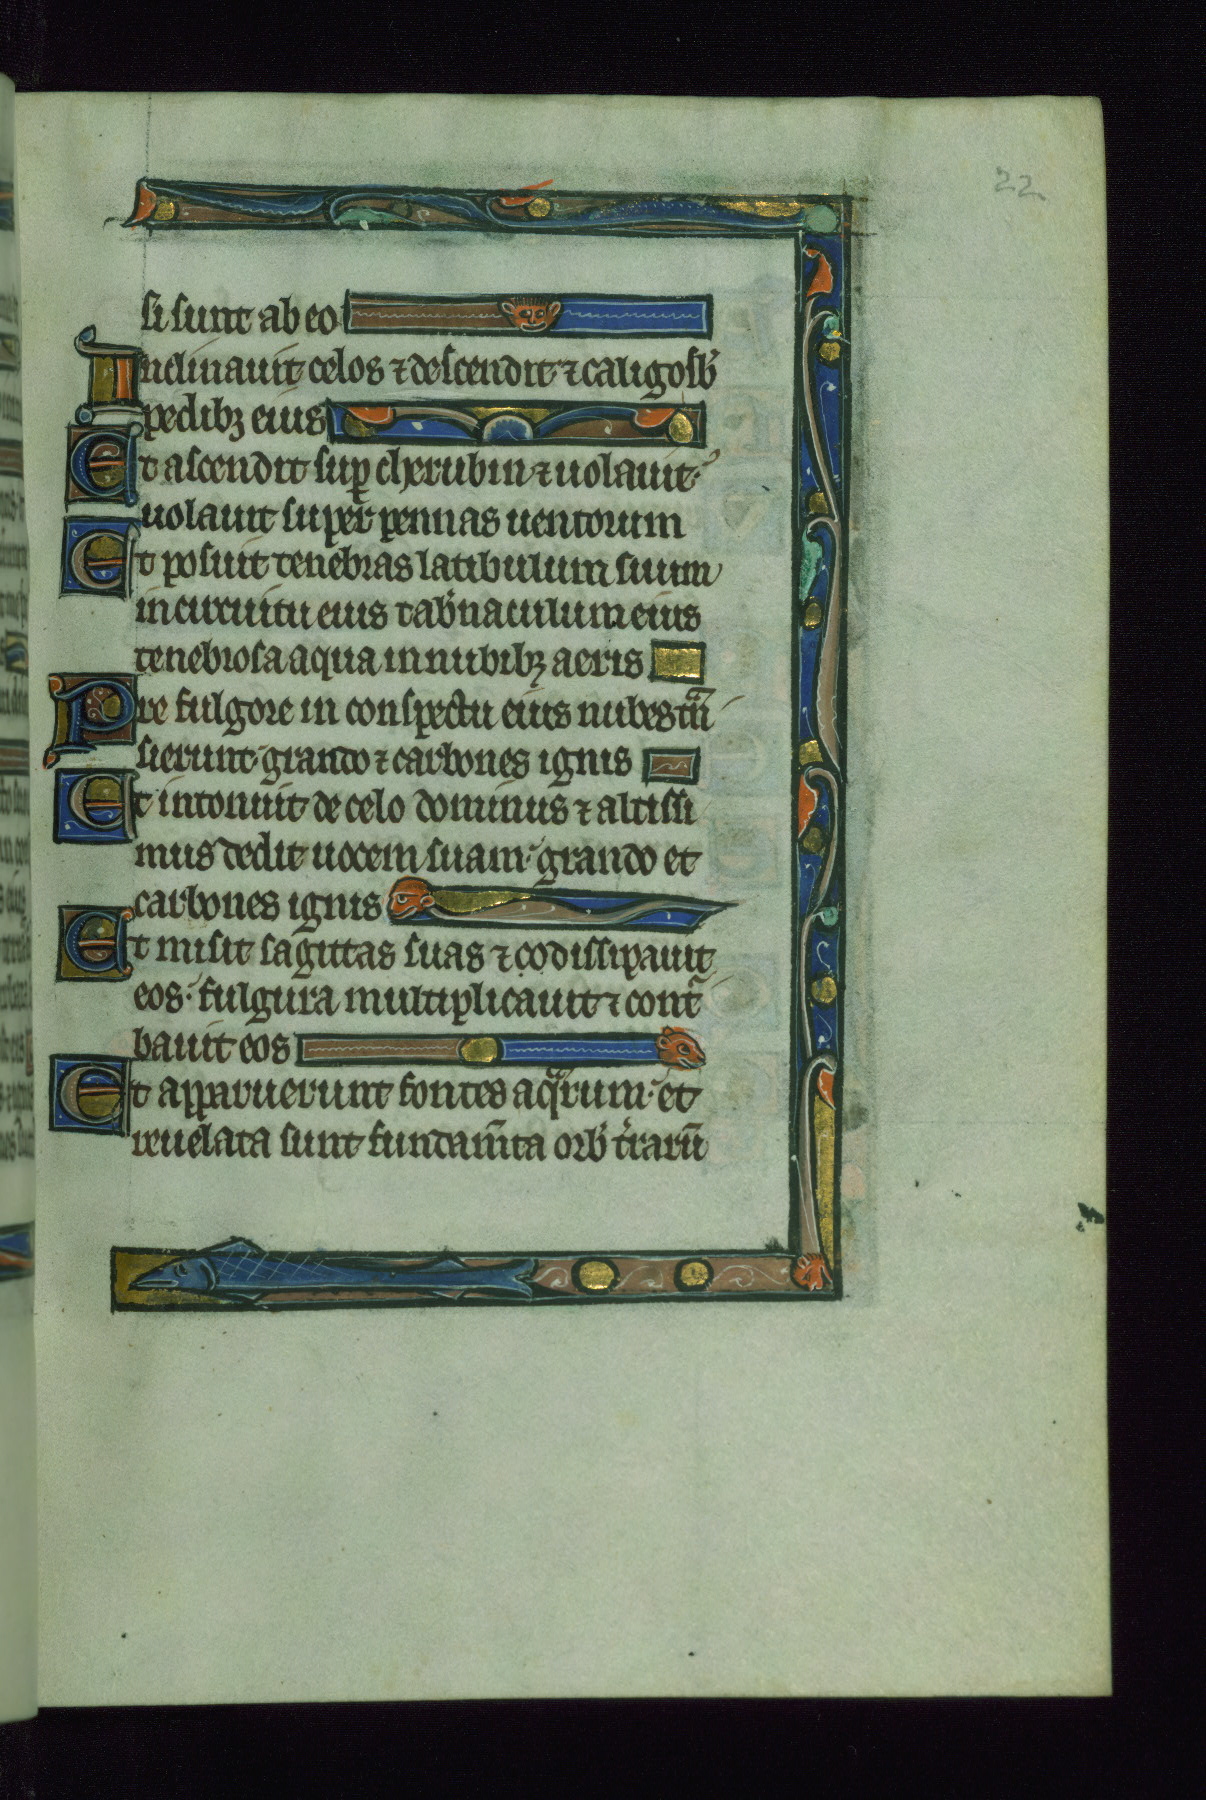 22
si sunt ab eo
Inclinauit celos ⁊ descendit ⁊ caligo sb̾
pedibꝫ eius
Et ascendit suꝑ cherubin ⁊ uolauit·
uolauit super pennas uentorum
Et posuit tenebras latibulum suum
in circuitu eius tab̾naculum eius
tenebrosa aqua in nubibꝫ aeris
Pre fulgore in conspectu eius nubes t̃ñ
sierunt· grando ⁊ carbones ignis
Et intonuit de celo dominus ⁊ altissi
mus dedit uocem suam· grando et
carbones ignis
Et misit sagittas suas ⁊ dissipauit
eos· fulgura multiplicauit ⁊ cont̾
bauit eos
Et apparuerunt fontes aqᷓrum· et
reuelata sunt fundam̄ta orb̾ t̾rarū